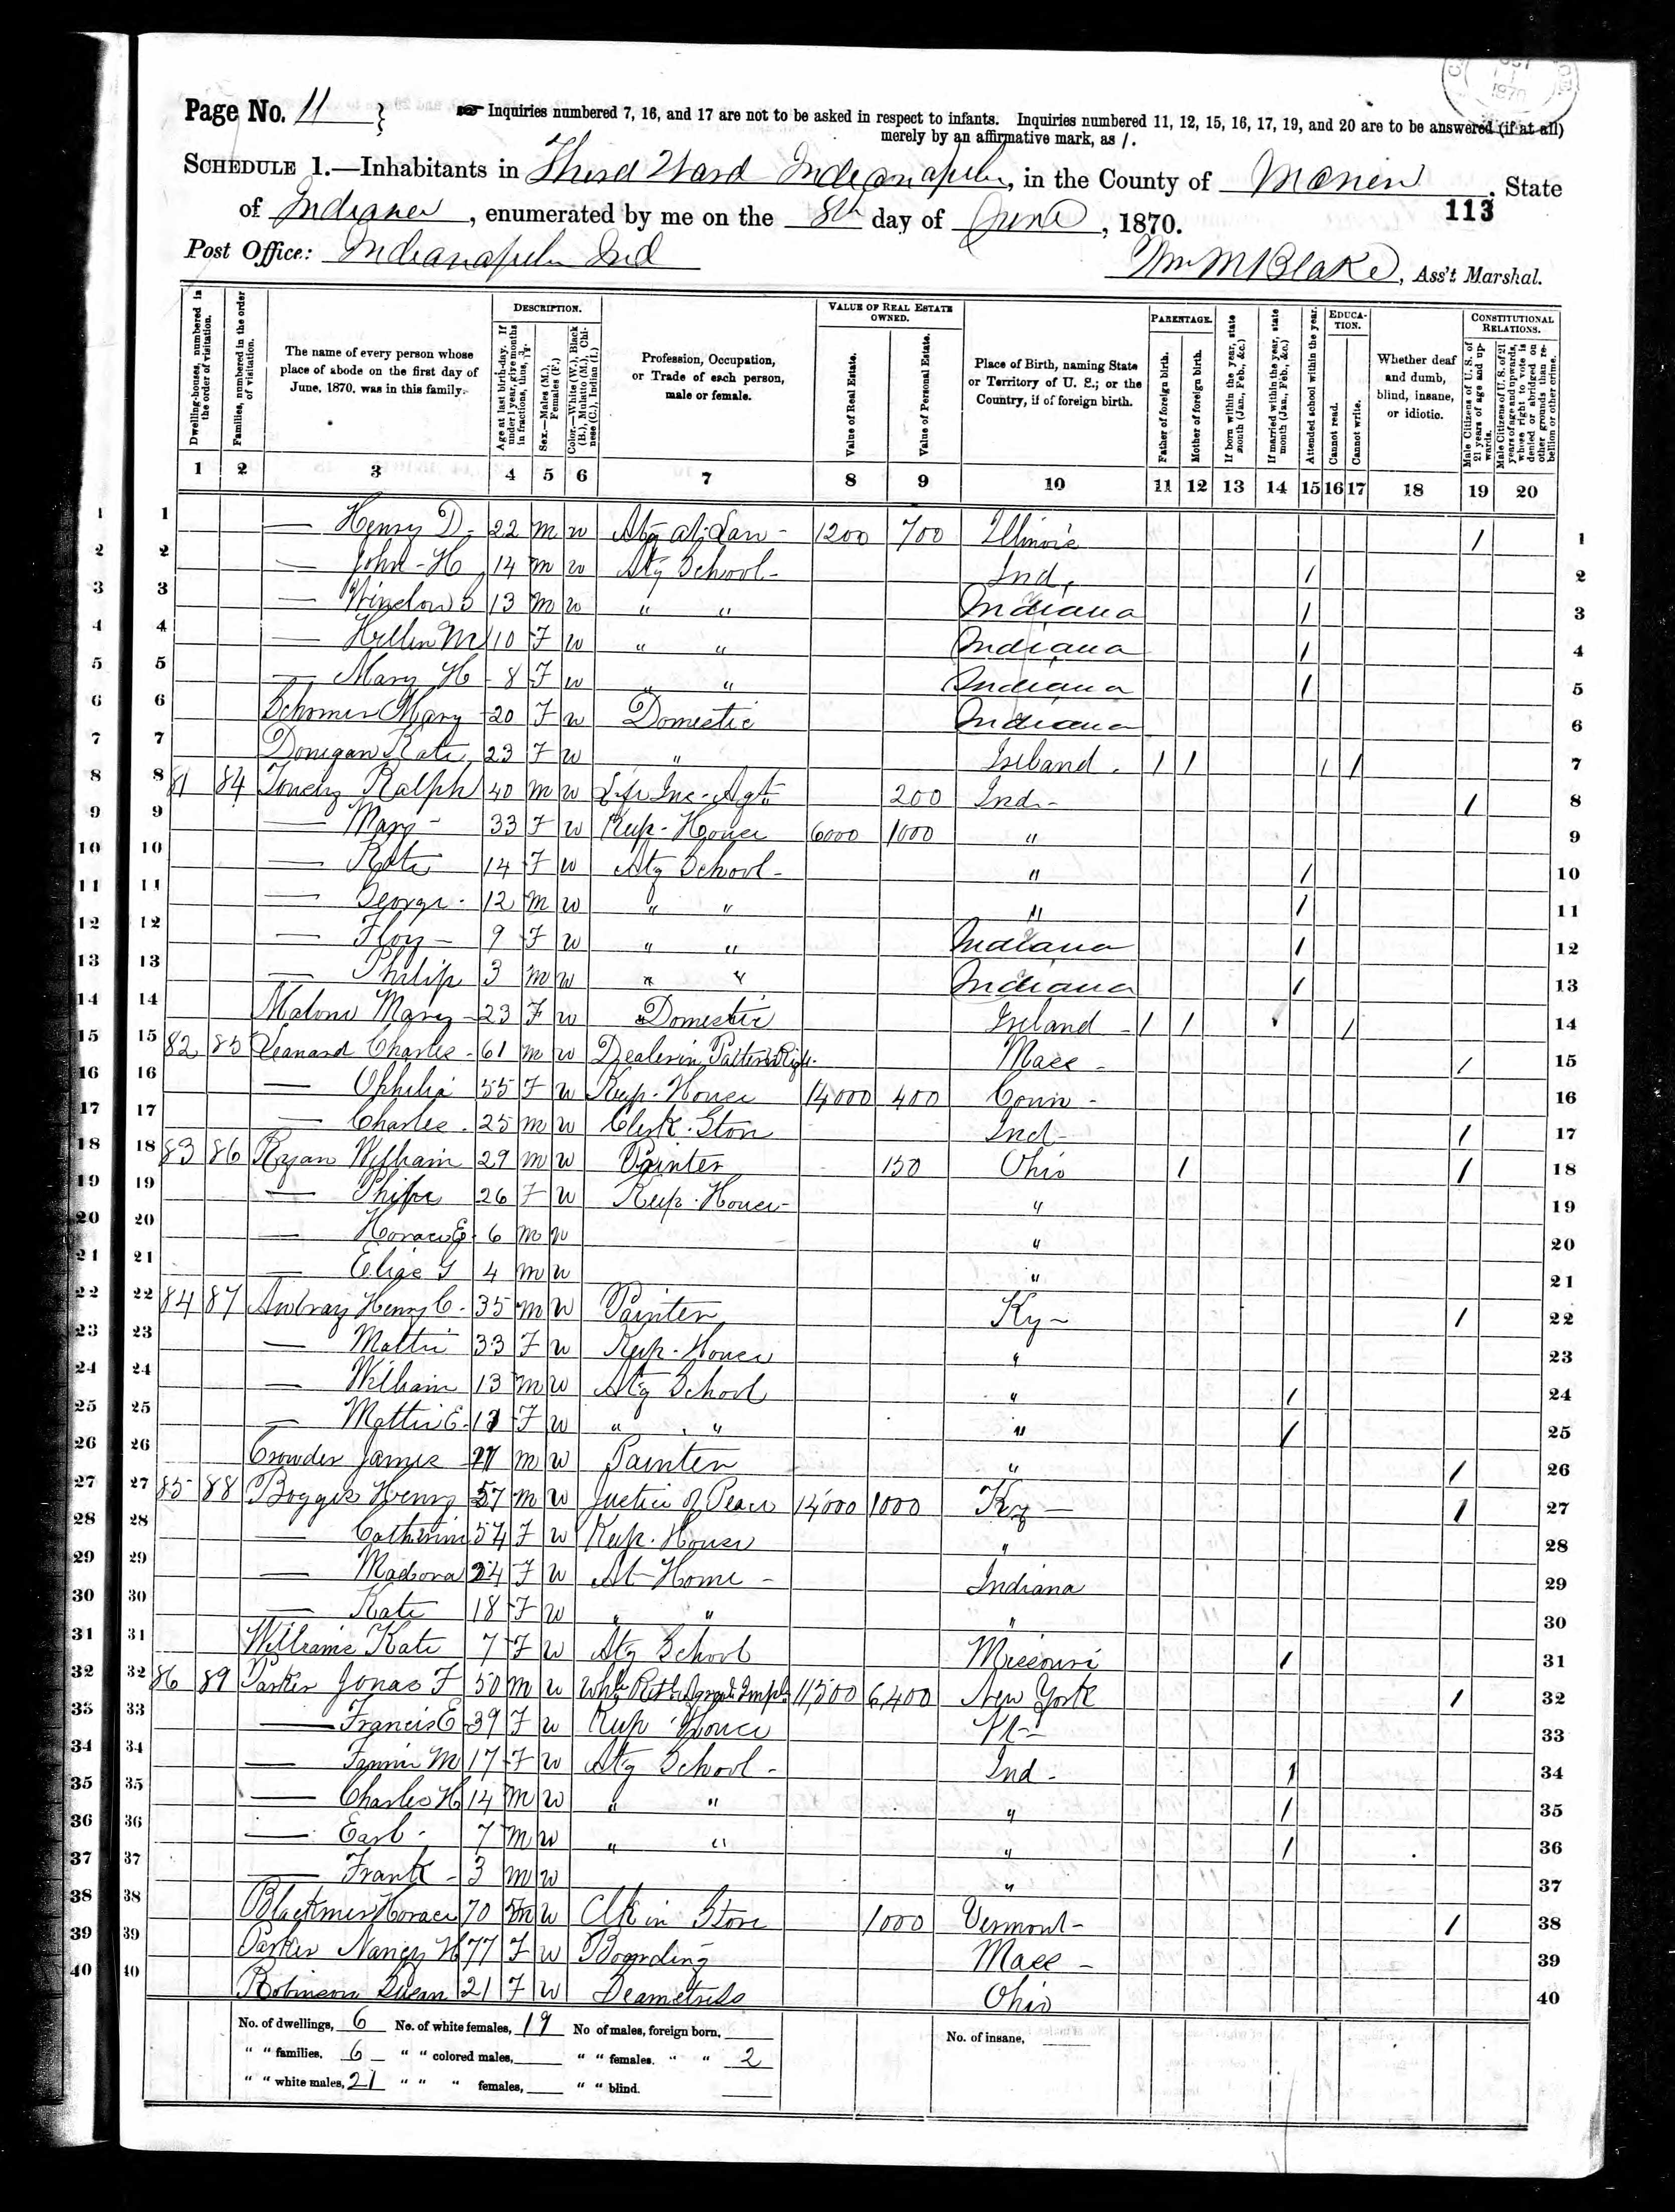 Page No. 11
Inquiries numbered 7, 16, and 17 are not to be asked in respect to infants. Inquiries numbered 11, 12, 15, 16, 17, 19, and 20 are to be answered (if at all)
merely by an affirmative mark, as /.
SCHEDULE 1.—Inhabitants in Third Ward Indianapolis, in the County of Marion, State
of Indiana, enumerated by me on the 8th day of June, 1870.
113
Post Office: Indianapolis Ind
Wm M Blake, Ass't Marshal.
Dwelling-houses, numbered in the order of visitation.
Families, numbered in the order of visitation.
The name of every person whose place of abode on the first day of June, 1870, was in this family.
DESCRIPTION.
Age at last birth-day. If under 1 year, give months in fractions, thus,
Sex.—Males (M.), Females (F.)
Color.—White (W.), Black (B.), Mulatto (M.), Chinese (C.), Indian (I.)
Profession, Occupation, or Trade of each person, male or female.
VALUE OF REAL ESTATE OWNED.
Value of Real Estate.
Value of Personal Estate.
Place of Birth, naming State or Territory of U. S.; or the Country, if of foreign birth.
PARENTAGE.
Father of foreign birth.
Mother of foreign birth.
If born within the year, state month (Jan., Feb., &c.)
If married within the year, state month (Jan., Feb., &c.)
Attended school within the year.
EDUCATION.
Cannot read.
Cannot write.
Whether deaf and dumb, blind, insane, or idiotic.
CONSTITUTIONAL RELATIONS.
Male Citizens of U. S. of 21 years of age and upwards.
Male Citizens of U. S. of 21 years of age and upwards, whose right to vote is denied or abridged on other grounds than rebellion or other crime.
1 2 3 4 5 6 7 8 9 10 11 12 13 14 15 16 17 18 19 20
1 1 — Henry D. 22 m w Atty at Law 1200 700 Illinois / 1
2 2 — John H 14 m w Atg School Ind. / 2
3 3 — Winslow S 13 m w " " Indiana / 3
4 4 — Hellen M 10 F w " " Indiana / 4
5 5 — Mary H 8 F w " " Indiana / 5
6 6 Mary 20 F w Domestic Indiana 6
7 7 Donegan Kate 23 F w " Ireland / / / / 7
8 8 81 84 Ralph 40 m w Life Ins. Agt 200 Ind / 8
9 9 — Mary 33 F w Keep. House 6000 1000 " 9
10 10 — Kate 14 F w Atg School " / 10
11 11 — George 12 m w " " " / 11
12 12 — Flory 9 F w " " Indiana / 12
13 13 — Philip 3 m w " " Indiana / 13
14 14 Malone Mary 23 F w Domestic Ireland / / / 14
15 15 82 85 Leanard Charles 61 m w Dealer in Mass / 15
16 16 — Ophelia 55 F w Keep. House 14000 400 Conn 16
17 17 — Charles 25 m w Clerk Store Ind / 17
18 18 83 86 Ryan William 29 m w Painter 150 Ohio / / 18
19 19 — 26 F w Keep. House " 19
20 20 — Horace E 6 m w " 20
21 21 — 4 m w " 21
22 22 84 87 Henry C. 35 m w Painter Ky / 22
23 23 — Mattie 33 F w Keep. House " 23
24 24 — William 13 m w Atg School " / 24
25 25 — Mattie E. F w " " " / 25
26 26 Crowder James m w Painter " / 26
27 27 85 88 Boggess Henry 57 m w Justice of Peace 14000 1000 Ky / 27
28 28 — Catherine 54 F w Keep. House " 28
29 29 — Madora 24 F w At Home Indiana 29
30 30 — Kate 18 F w " " " 30
31 31 Williams Kate 7 F w Atg School Missouri / 31
32 32 86 89 Parker Jonas F 50 m w 11,500 6,400 New York / 32
33 33 — Francis E 39 F w Keep House Vt 33
34 34 — Fannie M 17 F w Atg School Ind / 34
35 35 — Charles H 14 m w " " " / 35
36 36 — Earl 7 m w " " " / 36
37 37 — Frank 3 m w " 37
38 38 Blackmer Horace 70 m w Clk in Store 1000 Vermont / 38
39 39 Parker Nancy H 77 F w Boarding Mass 39
40 40 Robinson Susan 21 F w Seamstress Ohio 40
No. of dwellings, 6 No. of white females, 19 No of males, foreign born, No. of insane,
" " families, 6 " " colored males, " " females, " " 2
" " white males, 21 " " " females, " " blind.